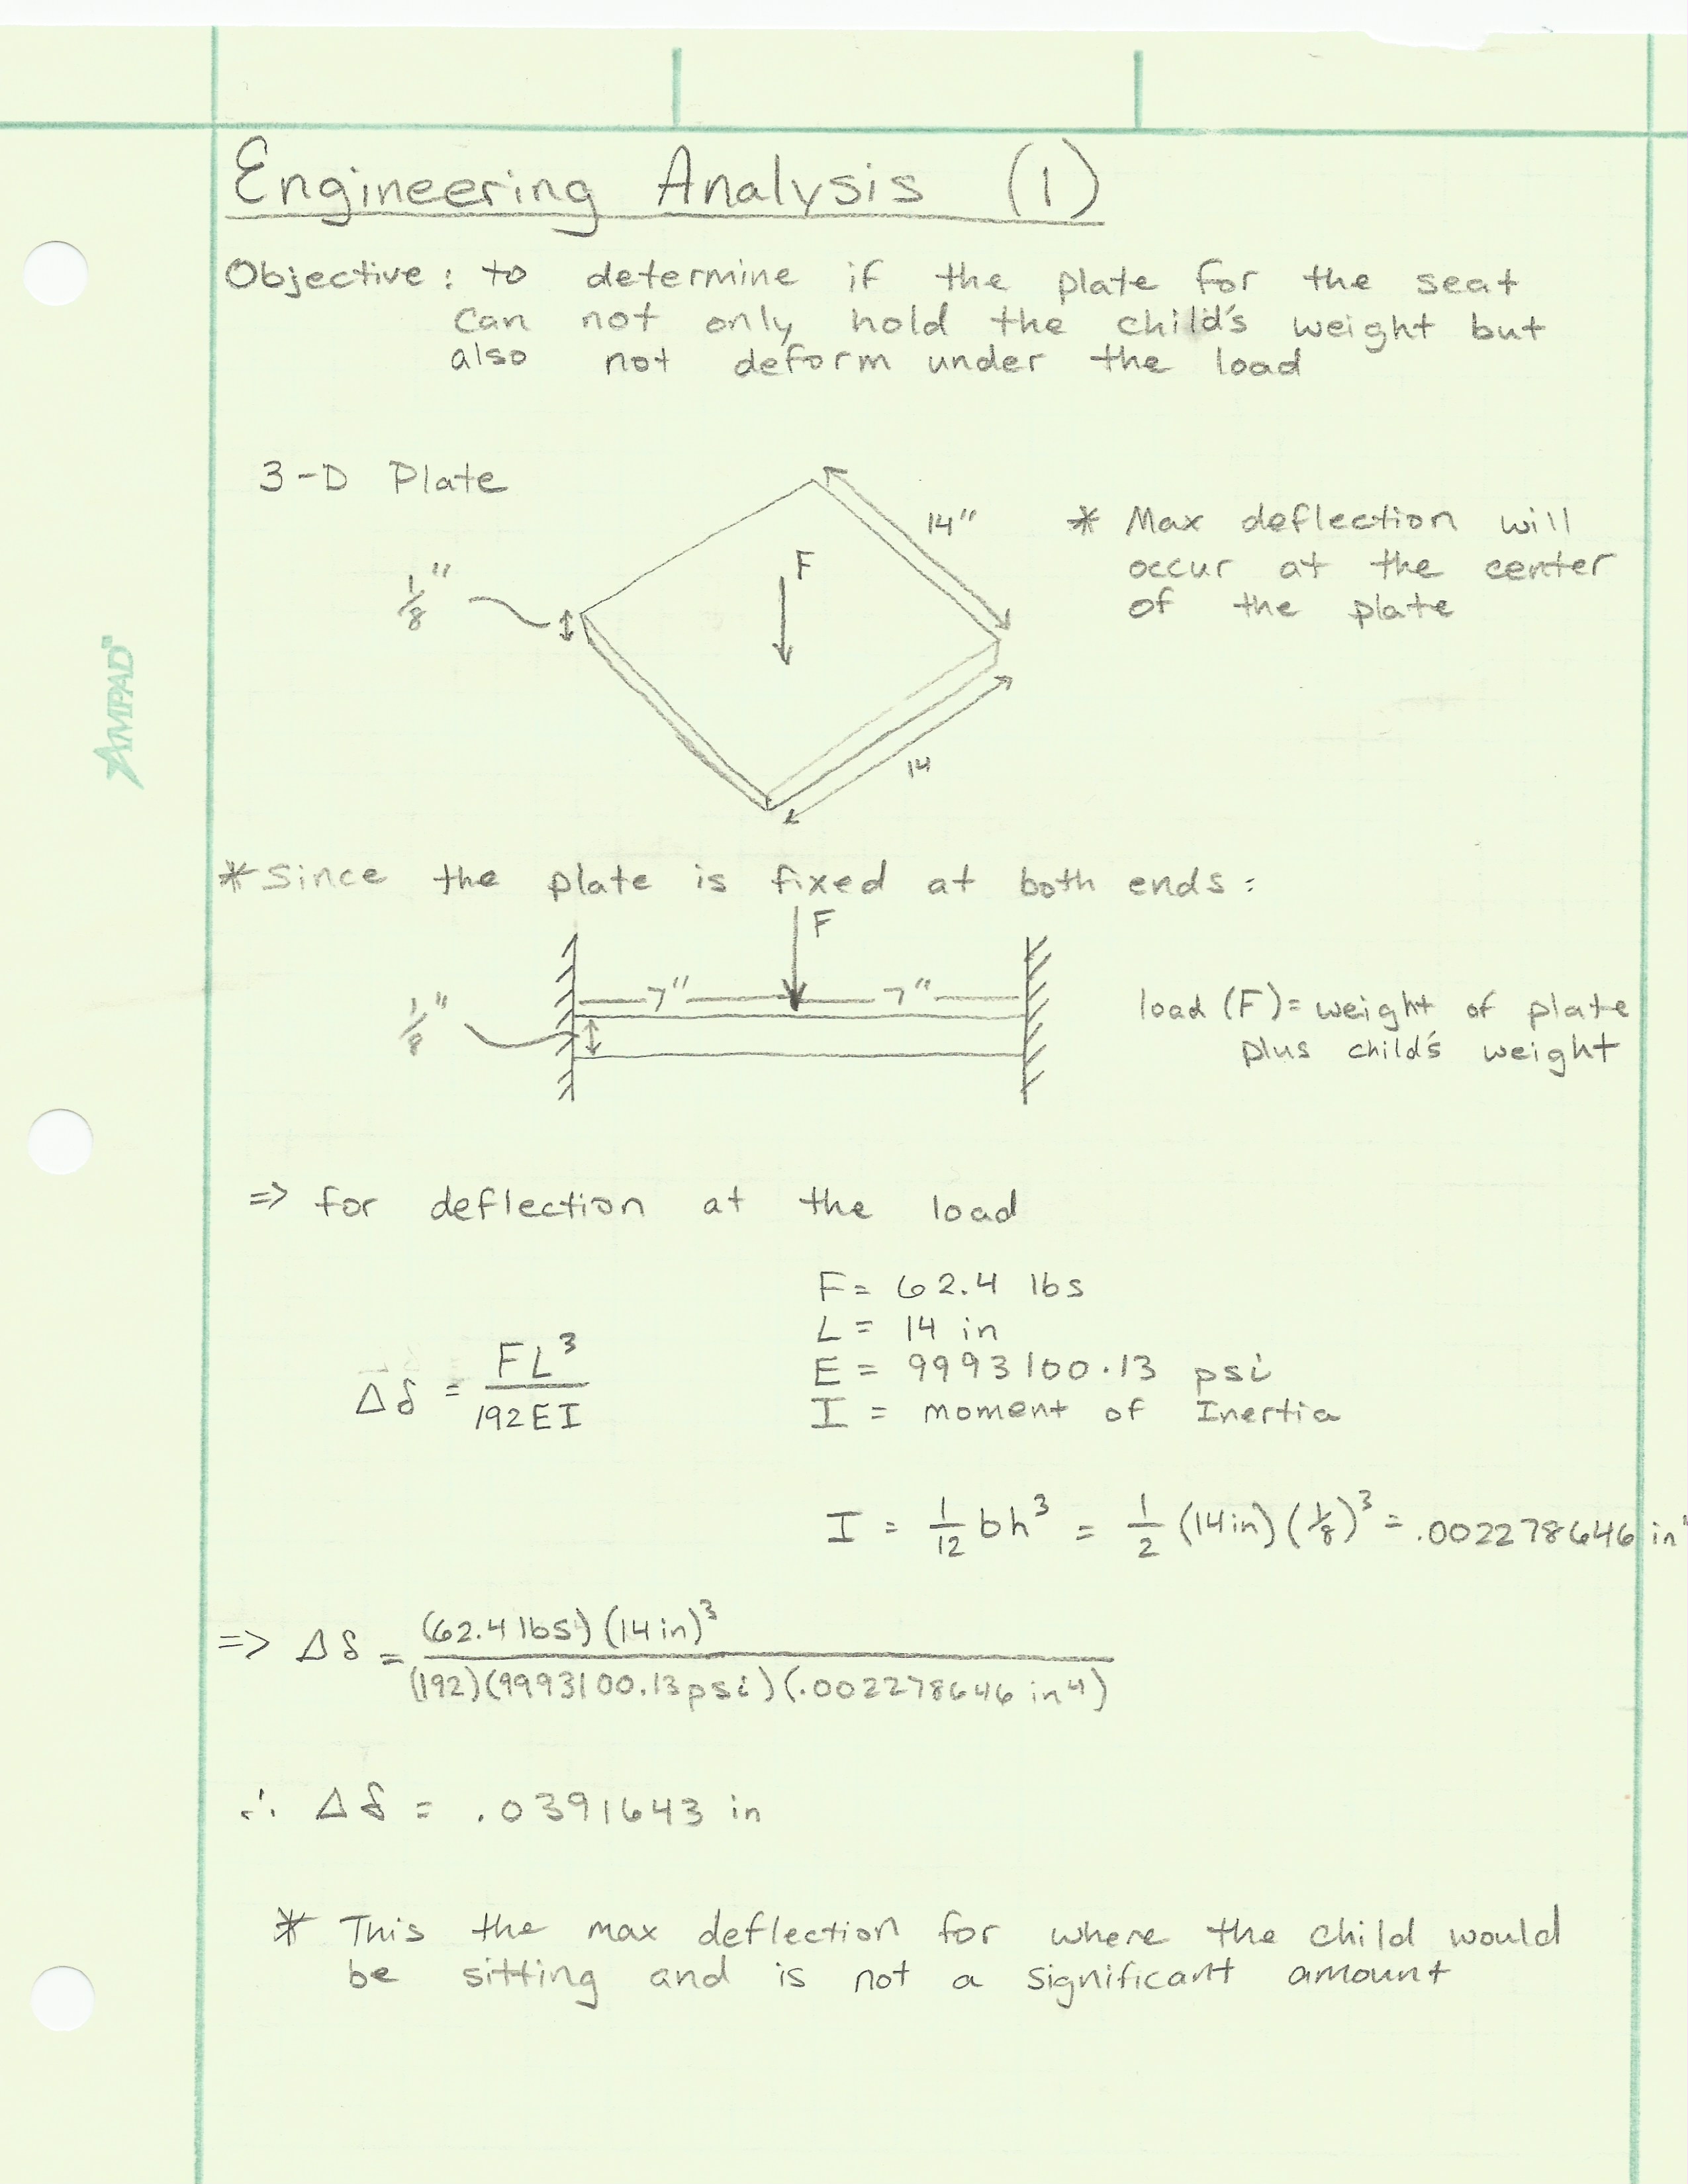 Engineering Analysis (1)
Objective: to determine if the plate for the seat
can not only hold the child's weight but
also not deform under the load
3-D Plate
14"
F
1/8"
* Max deflection will
occur at the center
of the plate
14
AMPAD
* Since the plate is fixed at both ends:
F
7" 7"
1/8"
load (F) = weight of plate
plus child's weight
=> for deflection at the load
F = 62.4 lbs
L = 14 in
E = 9993100.13 psi
I = moment of Inertia
Δδ = FL³/192EI
I = 1/12 bh³ = 1/2 (14in)(1/8)³ = .002278646 in⁴
=> Δδ = (62.4 lbs)(14in)³/(192)(9993100.13psi)(.002278646 in⁴)
∴ Δδ = .0391643 in
* This the max deflection for where the child would
be sitting and is not a significant amount